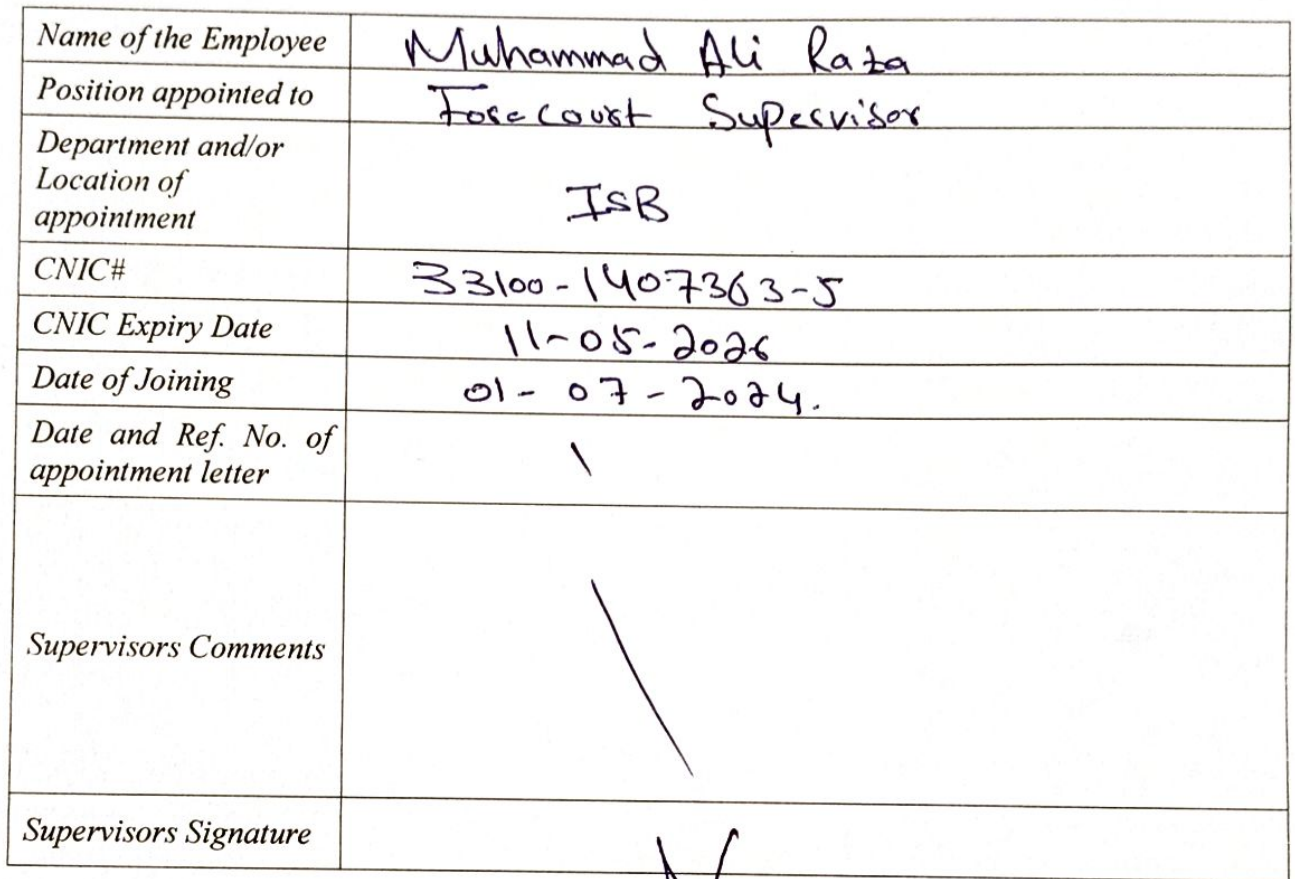 Name of the Employee Muhammad Ali Raza
Position appointed to Forecourt Supervisor
Department and/or
Location of
appointment ISB
CNIC# 33100-1407363-5
CNIC Expiry Date 11-05-2026
Date of Joining 01-07-2024.
Date and Ref. No. of
appointment letter \
Supervisors Comments \
Supervisors Signature